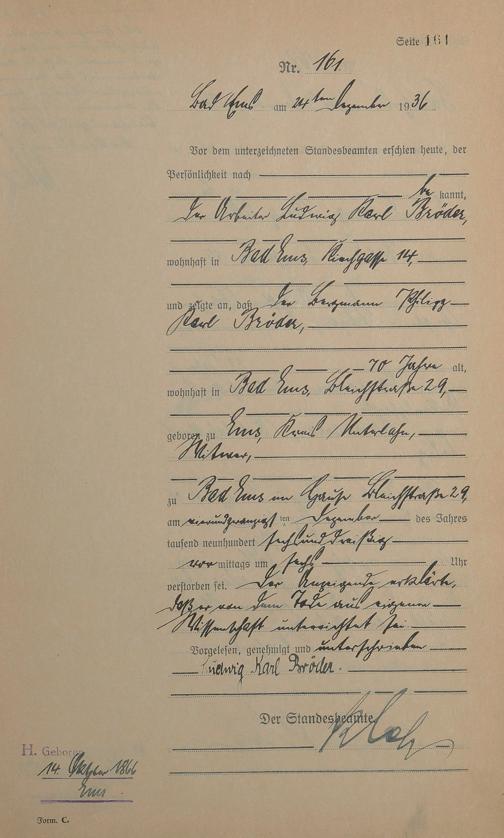 Seite 161
Nr. 161
Bad Ems am 24ten Dezember 1936
Vor dem unterzeichneten Standesbeamten erschien heute, der
Persönlichkeit nach
be kannt,
der Arbeiter Ludwig Karl Bröder,
wohnhaft in Bad Ems, Kirchgasse 14,
und zeigte an, daß der Bergmann Philipp
Karl Bröder,
70 Jahre alt,
wohnhaft in Bad Ems, Bleichstraße 29,
geboren zu Ems, Kreis Unterlahn,
Witwer,
zu Bad Ems im Hause Bleichstraße 29
am vierundzwanzigsten Dezember des Jahres
tausend neunhundert sechsunddreißig
vor mittags um sechs Uhr
verstorben sei. Der Anzeigende erklärte,
daß er von dem Tode aus eigener
Wissenschaft unterrichtet sei.
Vorgelesen, genehmigt und unterschrieben
Ludwig Karl Bröder.
Der Standesbeamte.
H. Geboren
14. Oktober 1866
Ems
Form. C.